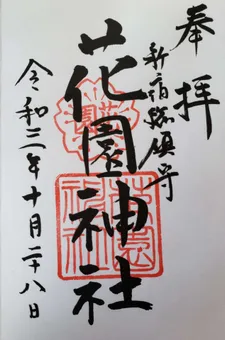 奉拝
新宿総鎮守
花園神社
令和二年十月二十八日